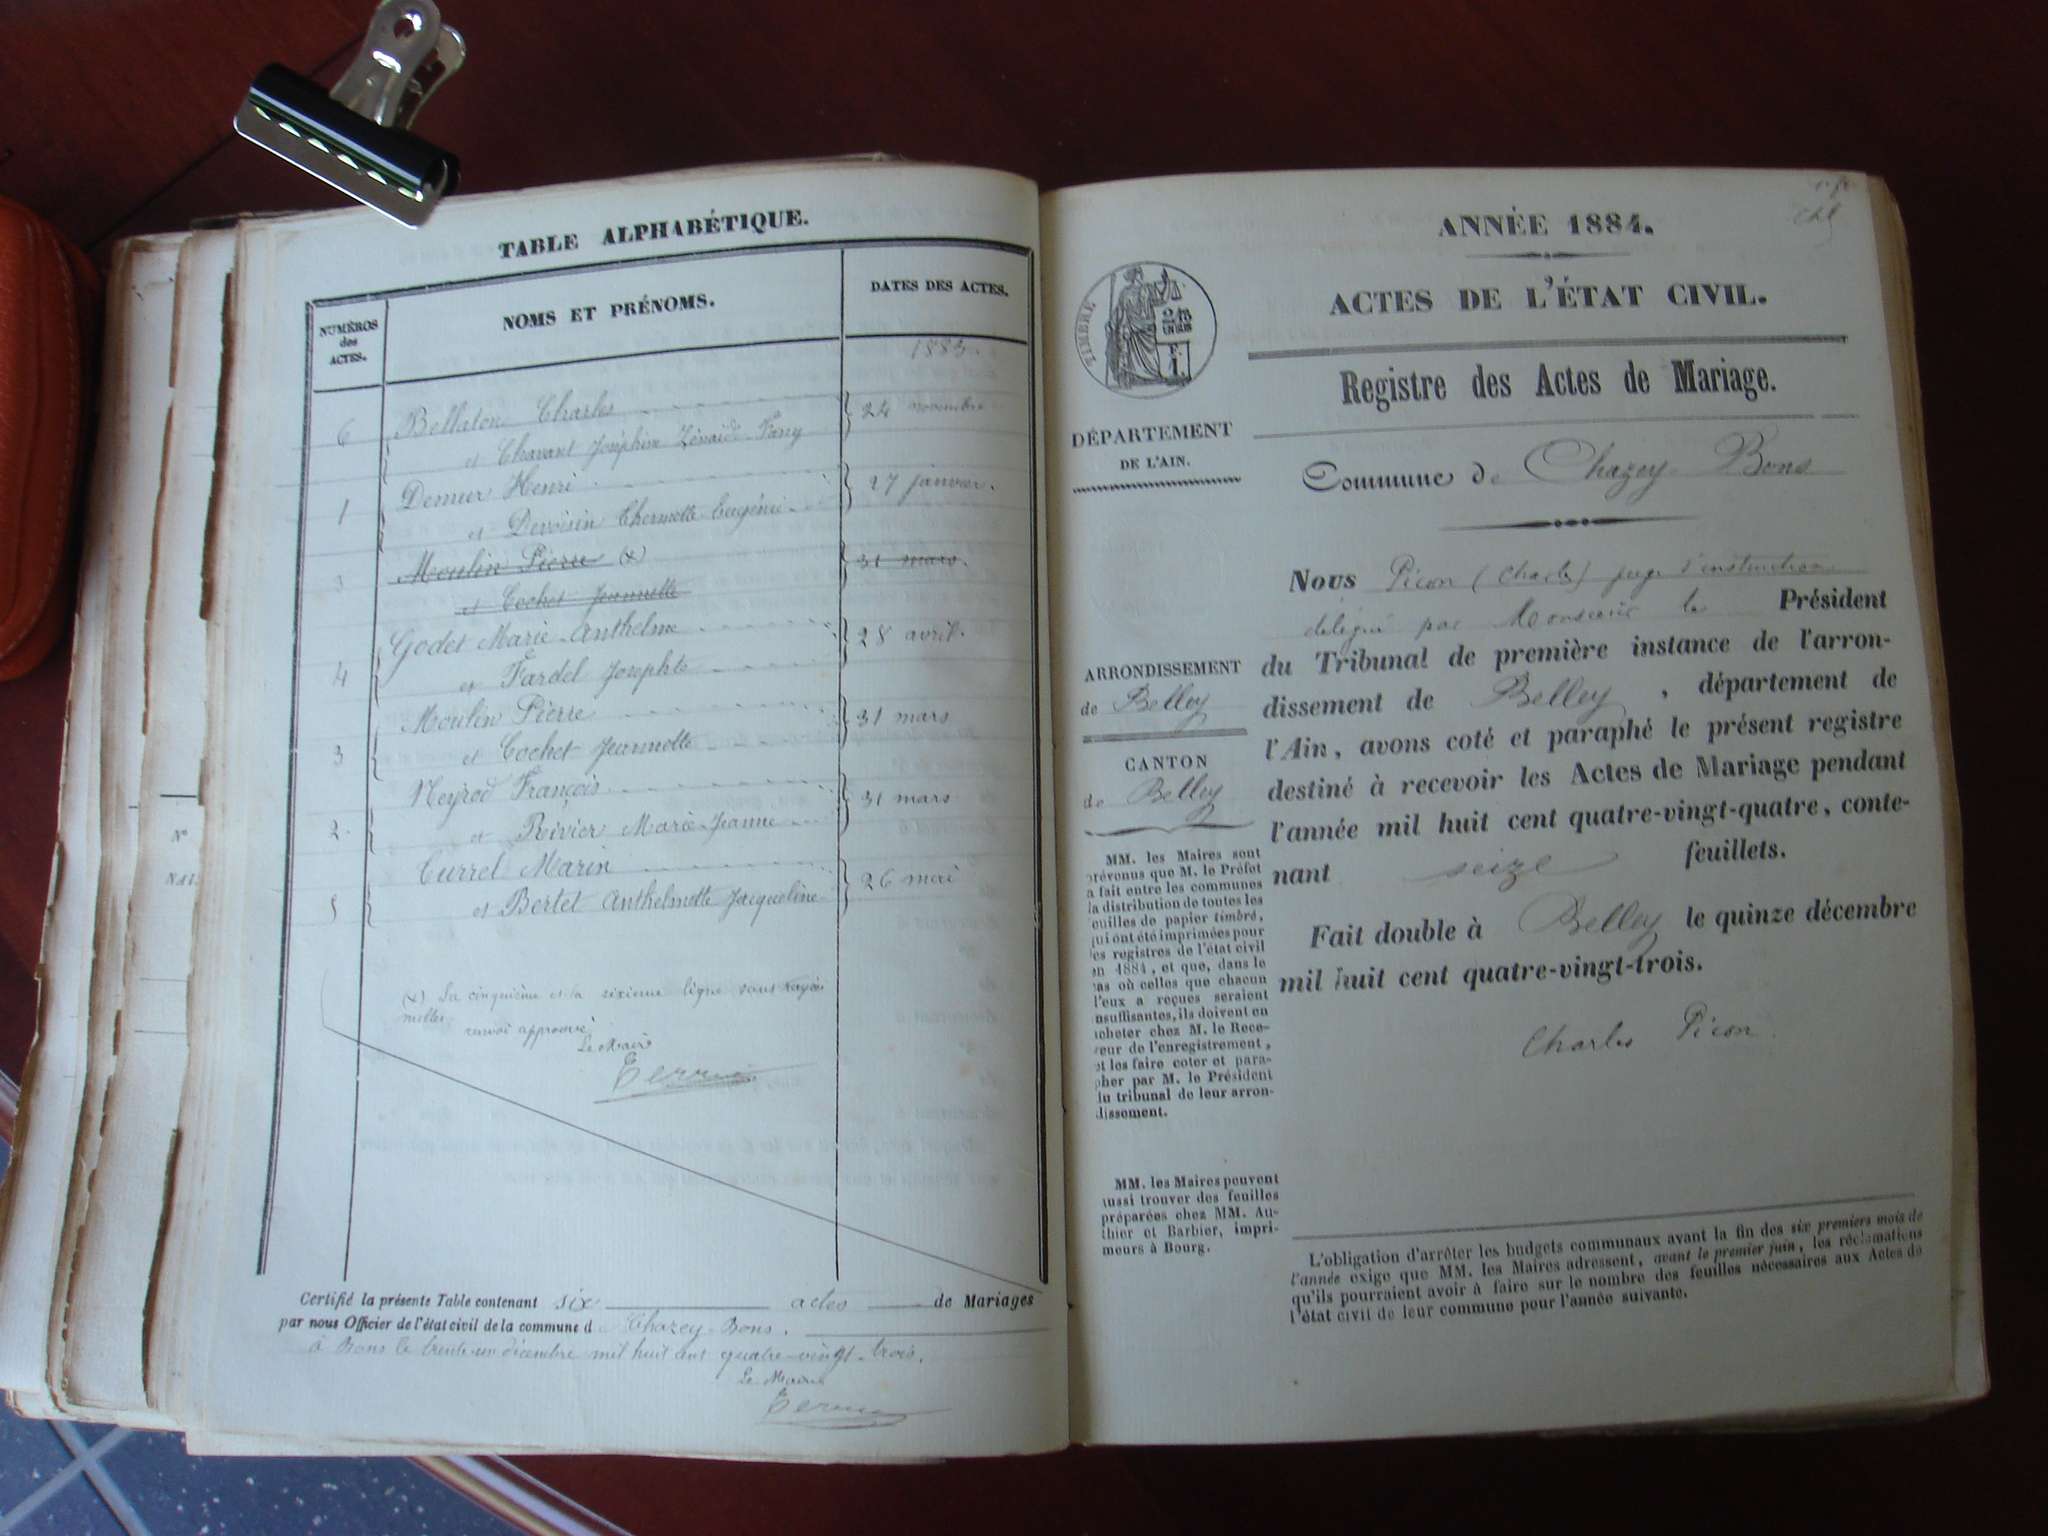 TABLE ALPHABÉTIQUE.
NUMÉROS des ACTES.
NOMS ET PRÉNOMS.
DATES DES ACTES.
1883.
6 Bellaton Charles 24 novembre
et Chavant Joséphine Zénaïde Fany
1 Demeur Henri 27 janvier.
et Devoisin Thermette Eugénie
3 Moulin Pierre (x) 31 mars.
et Cochet Jeannette
4 Godet Marie-Anthelme 28 avril.
et Fardel Josephte
3 Moulin Pierre 31 mars
et Cochet Jeannette
2 Neyrod François 31 mars
et Rivier Marie-Jeanne
5 Currel Marin 26 mai
et Bertet Anthelmette Jacqueline
(x) La cinquième et la sixième ligne sont rayées
nulles.
renvoi approuvé
Le Maire
Certifié la présente Table contenant six actes de Mariages
par nous Officier de l'état civil de la commune de Chazey-Bons.
à Bons le trente-un décembre mil huit cent quatre-vingt-trois.
Le Maire
ANNÉE 1884.
ACTES DE L'ÉTAT CIVIL.
TIMBRE
Registre des Actes de Mariage.
DÉPARTEMENT
DE L'AIN.
Commune de Chazey-Bons
Nous Picon (Charles) juge d'instruction
délégué par Monsieur le Président
du Tribunal de première instance de l'arron-
dissement de Belley, département de
l'Ain, avons coté et paraphé le présent registre
destiné à recevoir les Actes de Mariage pendant
l'année mil huit cent quatre-vingt-quatre, conte-
nant seize feuillets.
Fait double à Belley le quinze décembre
mil huit cent quatre-vingt-trois.
Charles Picon
ARRONDISSEMENT
de Belley
CANTON
de Belley
MM. les Maires sont
prévenus que M. le Préfet
a fait entre les communes
la distribution de toutes les
feuilles de papier timbré,
qui ont été imprimées pour
les registres de l'état civil
en 1884, et que, dans le
cas où celles que chacun
d'eux a reçues seraient
insuffisantes, ils doivent en
acheter chez M. le Rece-
veur de l'enregistrement,
et les faire coter et para-
pher par M. le Président
du tribunal de leur arron-
dissement.
MM. les Maires peuvent
aussi trouver des feuilles
préparées chez MM. Au-
thier et Barbier, impri-
meurs à Bourg.
L'obligation d'arrêter les budgets communaux avant la fin des six premiers mois de
l'année exige que MM. les Maires adressent, avant le premier juin, les réclamations
qu'ils pourraient avoir à faire sur le nombre des feuilles nécessaires aux Actes de
l'état civil de leur commune pour l'année suivante.